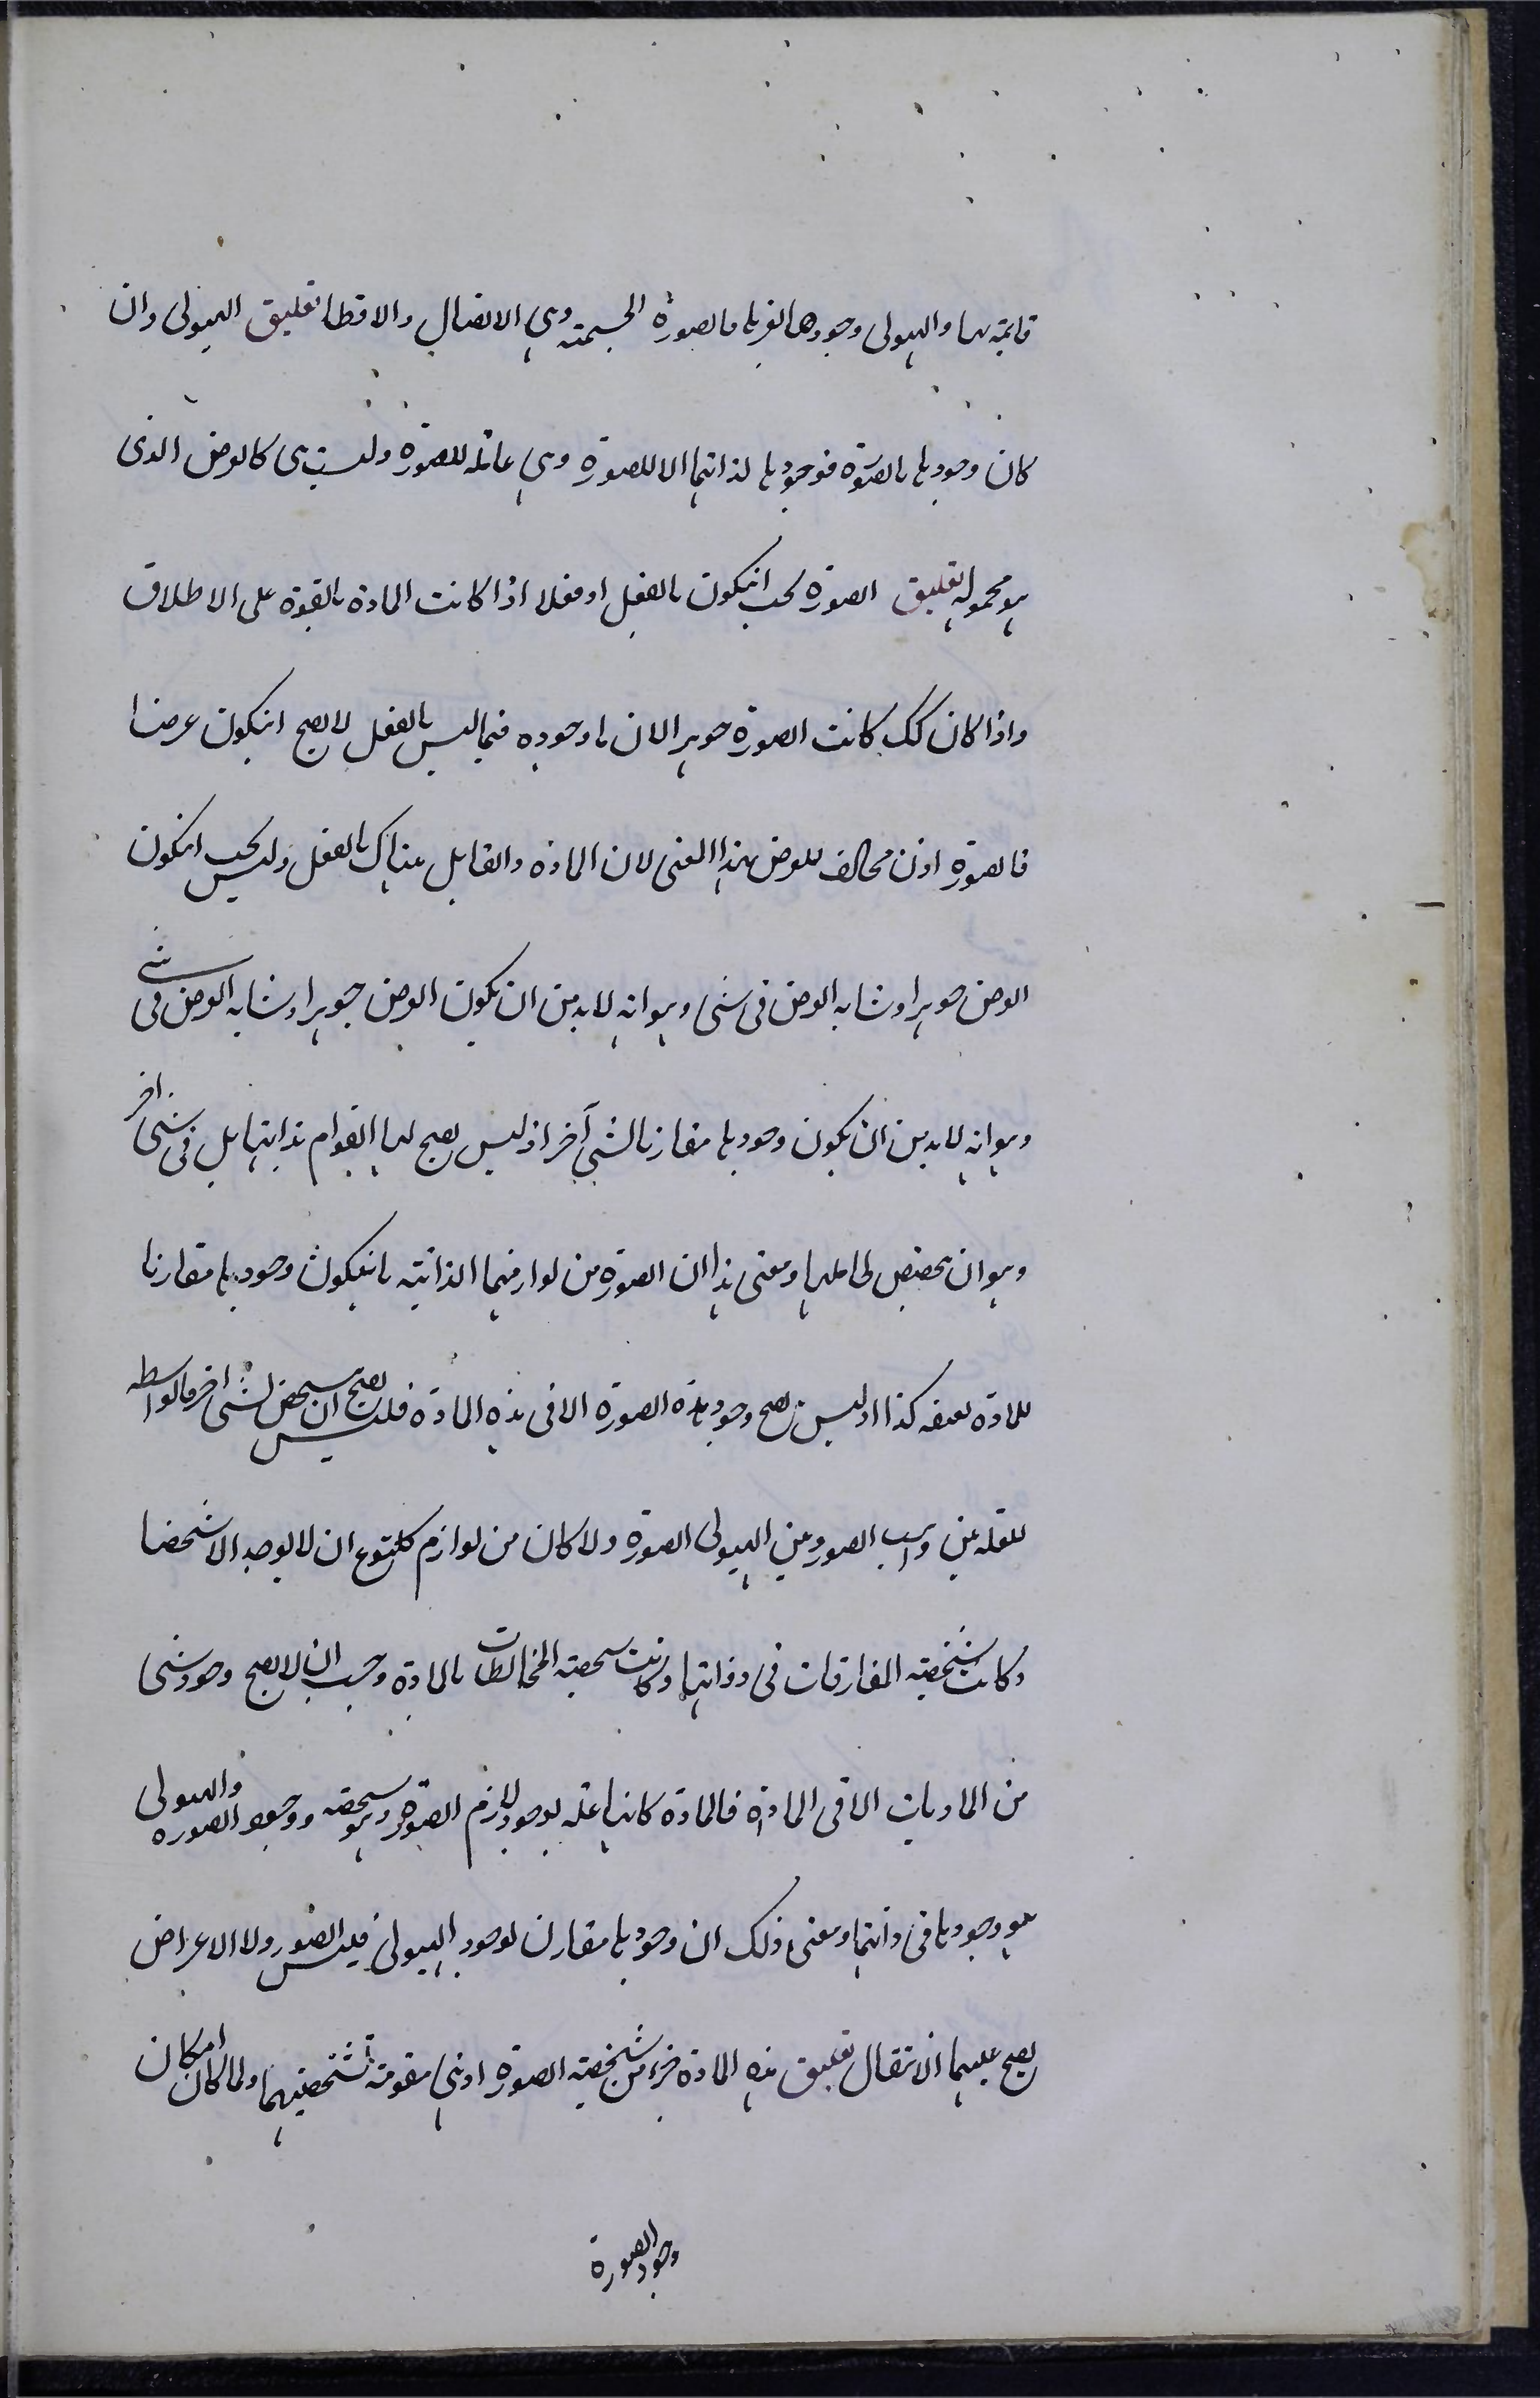 قائمة بها والهيولى وجودها لغيرها فالصورة الجسمية وهي الاتصال والاقطا تعليق الهيولى وان
كان وجودها بالصورة فوجودها لذاتها الا للصورة وهي علته للصورة وليست هى كالعرض الذى
هو محموله تعليق الصورة يجب انيكون بالفعل او فعلا اذا كانت المادة بالقوة على الاطلاق
واذا كان كك كانت الصورة جوهرا لان ما وجوده فيما ليس بالفعل لا يصح انيكون عرضا
فالصورة اذن مخالف للعرض بهذا المعنى لان المادة والقابل هناك بالفعل وليس يجب انيكون
العرض جوهرا وشابه العرض فى شىء وهو انه لا بد من ان يكون العرض جوهرا وشابه العرض فى شىء
وهو انه لا بد من ان يكون وجودها مقارنا لشىء آخر اذ ليس يصح لها القوام بذاتها بل فى شىء اخر
وهو ان يختص لحاملها ومعنى هذا ان الصورة من لوازمها الذاتية بانيكون وجودها مقارنا
للمادة بصفة كذا اذ ليس يصح وجود هذه الصورة الا فى هذه المادة فليس يصح ان يتشخص لشىء اخر فالواسطه
للعلة بين واهب الصور وبين الهيولى الصورة ولا كان من لوازم كل نوع ان لا يوجد الا شخصا
وكانت شخصية المفارقات فى ذواتها وكانت شخصية المخالطات بالمادة وجب ان لا يصح وجود شىء
من الماديات الا فى المادة فالمادة كانها علة لوجود لازم الصورة وهو تشخصه ووجود الصورة والهيولى
هو وجودها فى ذاتها ومعنى ذلك ان وجودها مقارن لوجود الهيولى فليس الصور ولا الاعراض
يصح عليها الانتقال تعليق هذه المادة جزء من شخصية الصورة اذ هى مقومة لتشخصيتها ولما كان امكان
وجود الصورة